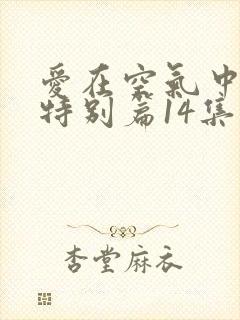 愛在空氣中
特别篇14集
杏堂麻衣